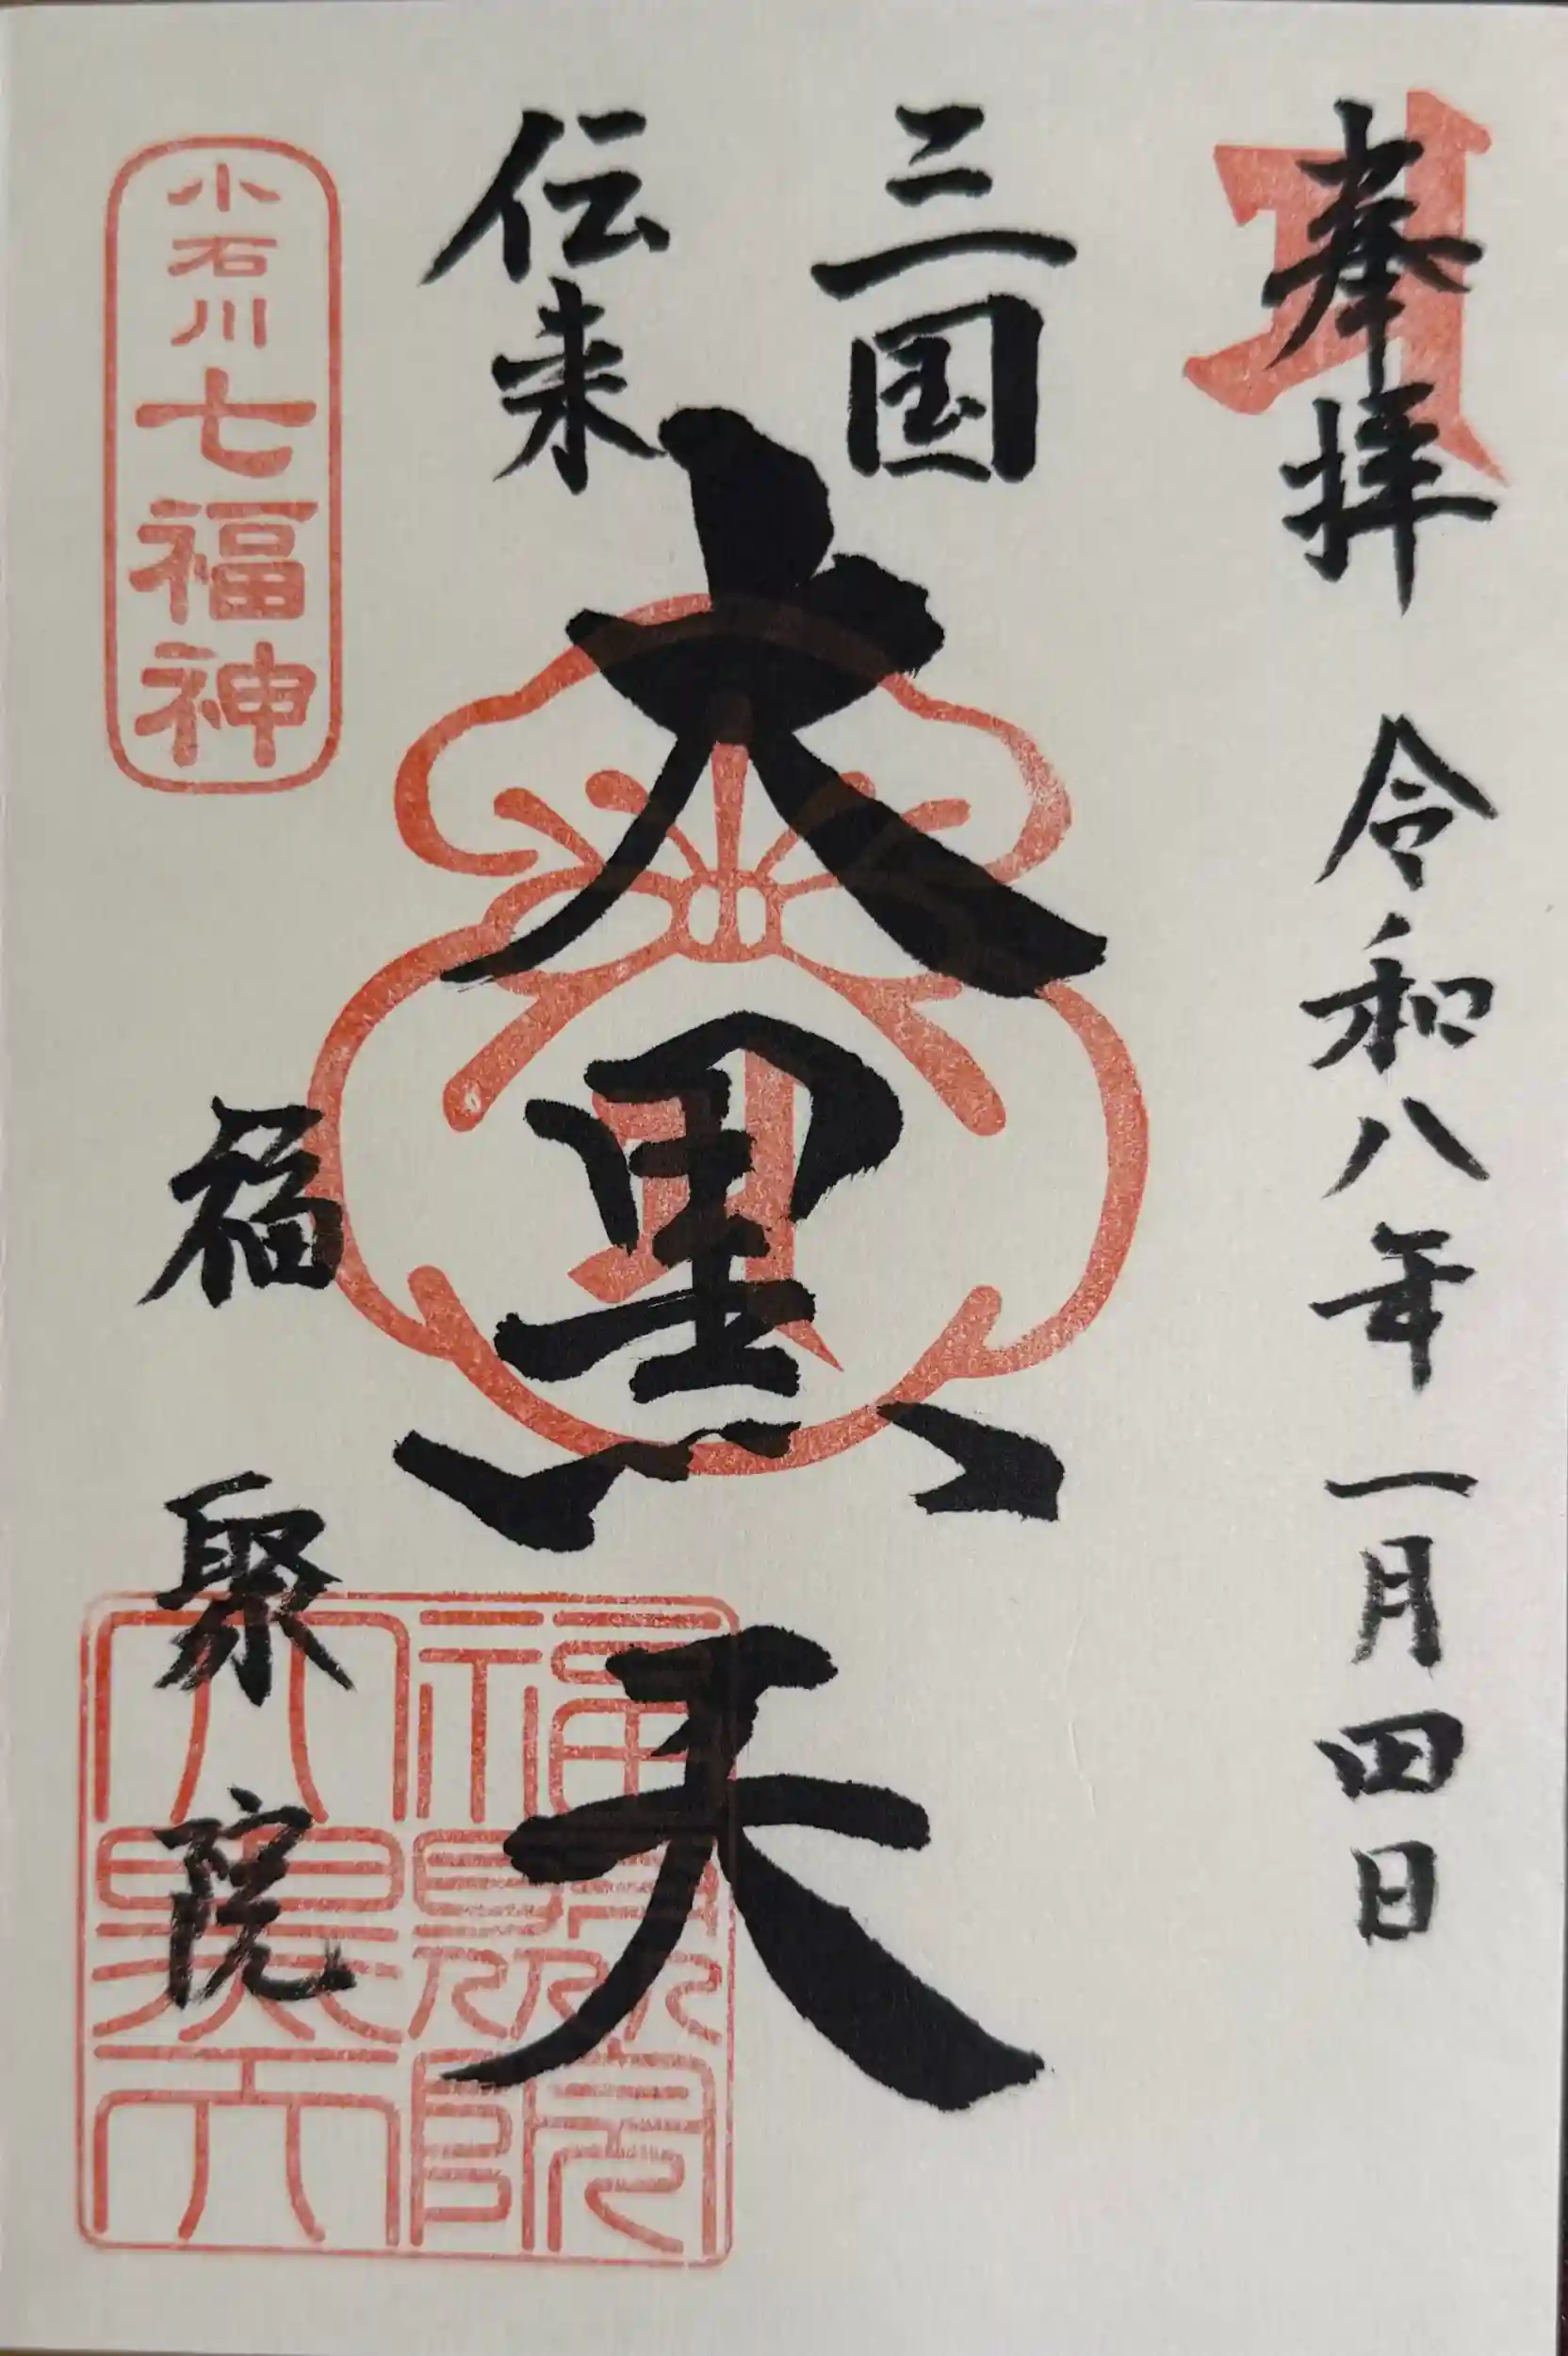 奉拝
令和八年一月四日
三国
伝来
大黒天
小石川七福神
福聚院
福聚院
大黒天